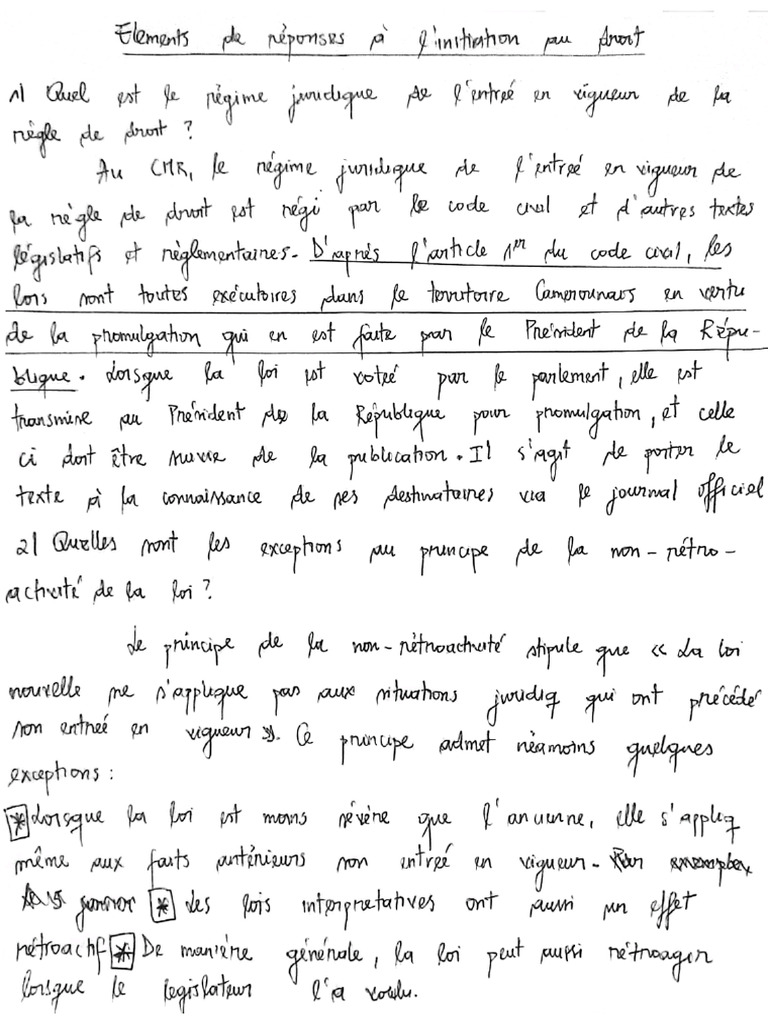 Elements de réponses à l'initiation au droit
1) Quel est le régime juridique de l'entreé en vigueur de la
règle de droit ?
Au CMR, le régime juridique de l'entreé en vigueur de
la règle de droit est régi par le code civil et d'autres textes
législatifs et règlementaires. D'après l'article 1er du code civil, les
lois sont toutes exécutoires dans le territoire Camerounais en vertu
de la promulgation qui en est faite par le Président de la Répu-
blique. Lorsque la loi est votreé par le parlement, elle est
transmise au Président de la République pour promulgation, et celle
ci doit être suivie de la publication. Il s'agit de porter le
texte à la connaissance de ses destinataires via le journal officiel
2) Quelles sont les exceptions au principe de la non-rétro-
activité de la loi ?
Le principe de la non-rétroactivité stipule que « La loi
nouvelle ne s'applique pas aux situations juridiq qui ont précédé
son entreé en vigueur ». Ce principe admet néamoins quelques
exceptions :
* Lorsque la loi est moins sévère que l'ancienne, elle s'appliq
même aux faits antérieurs son entreé en vigueur.
* Les lois interpretatives ont aussi un effet
rétroactif * De manière générale, la loi peut aussi rétroager
lorsque le legislateur l'a voulu.